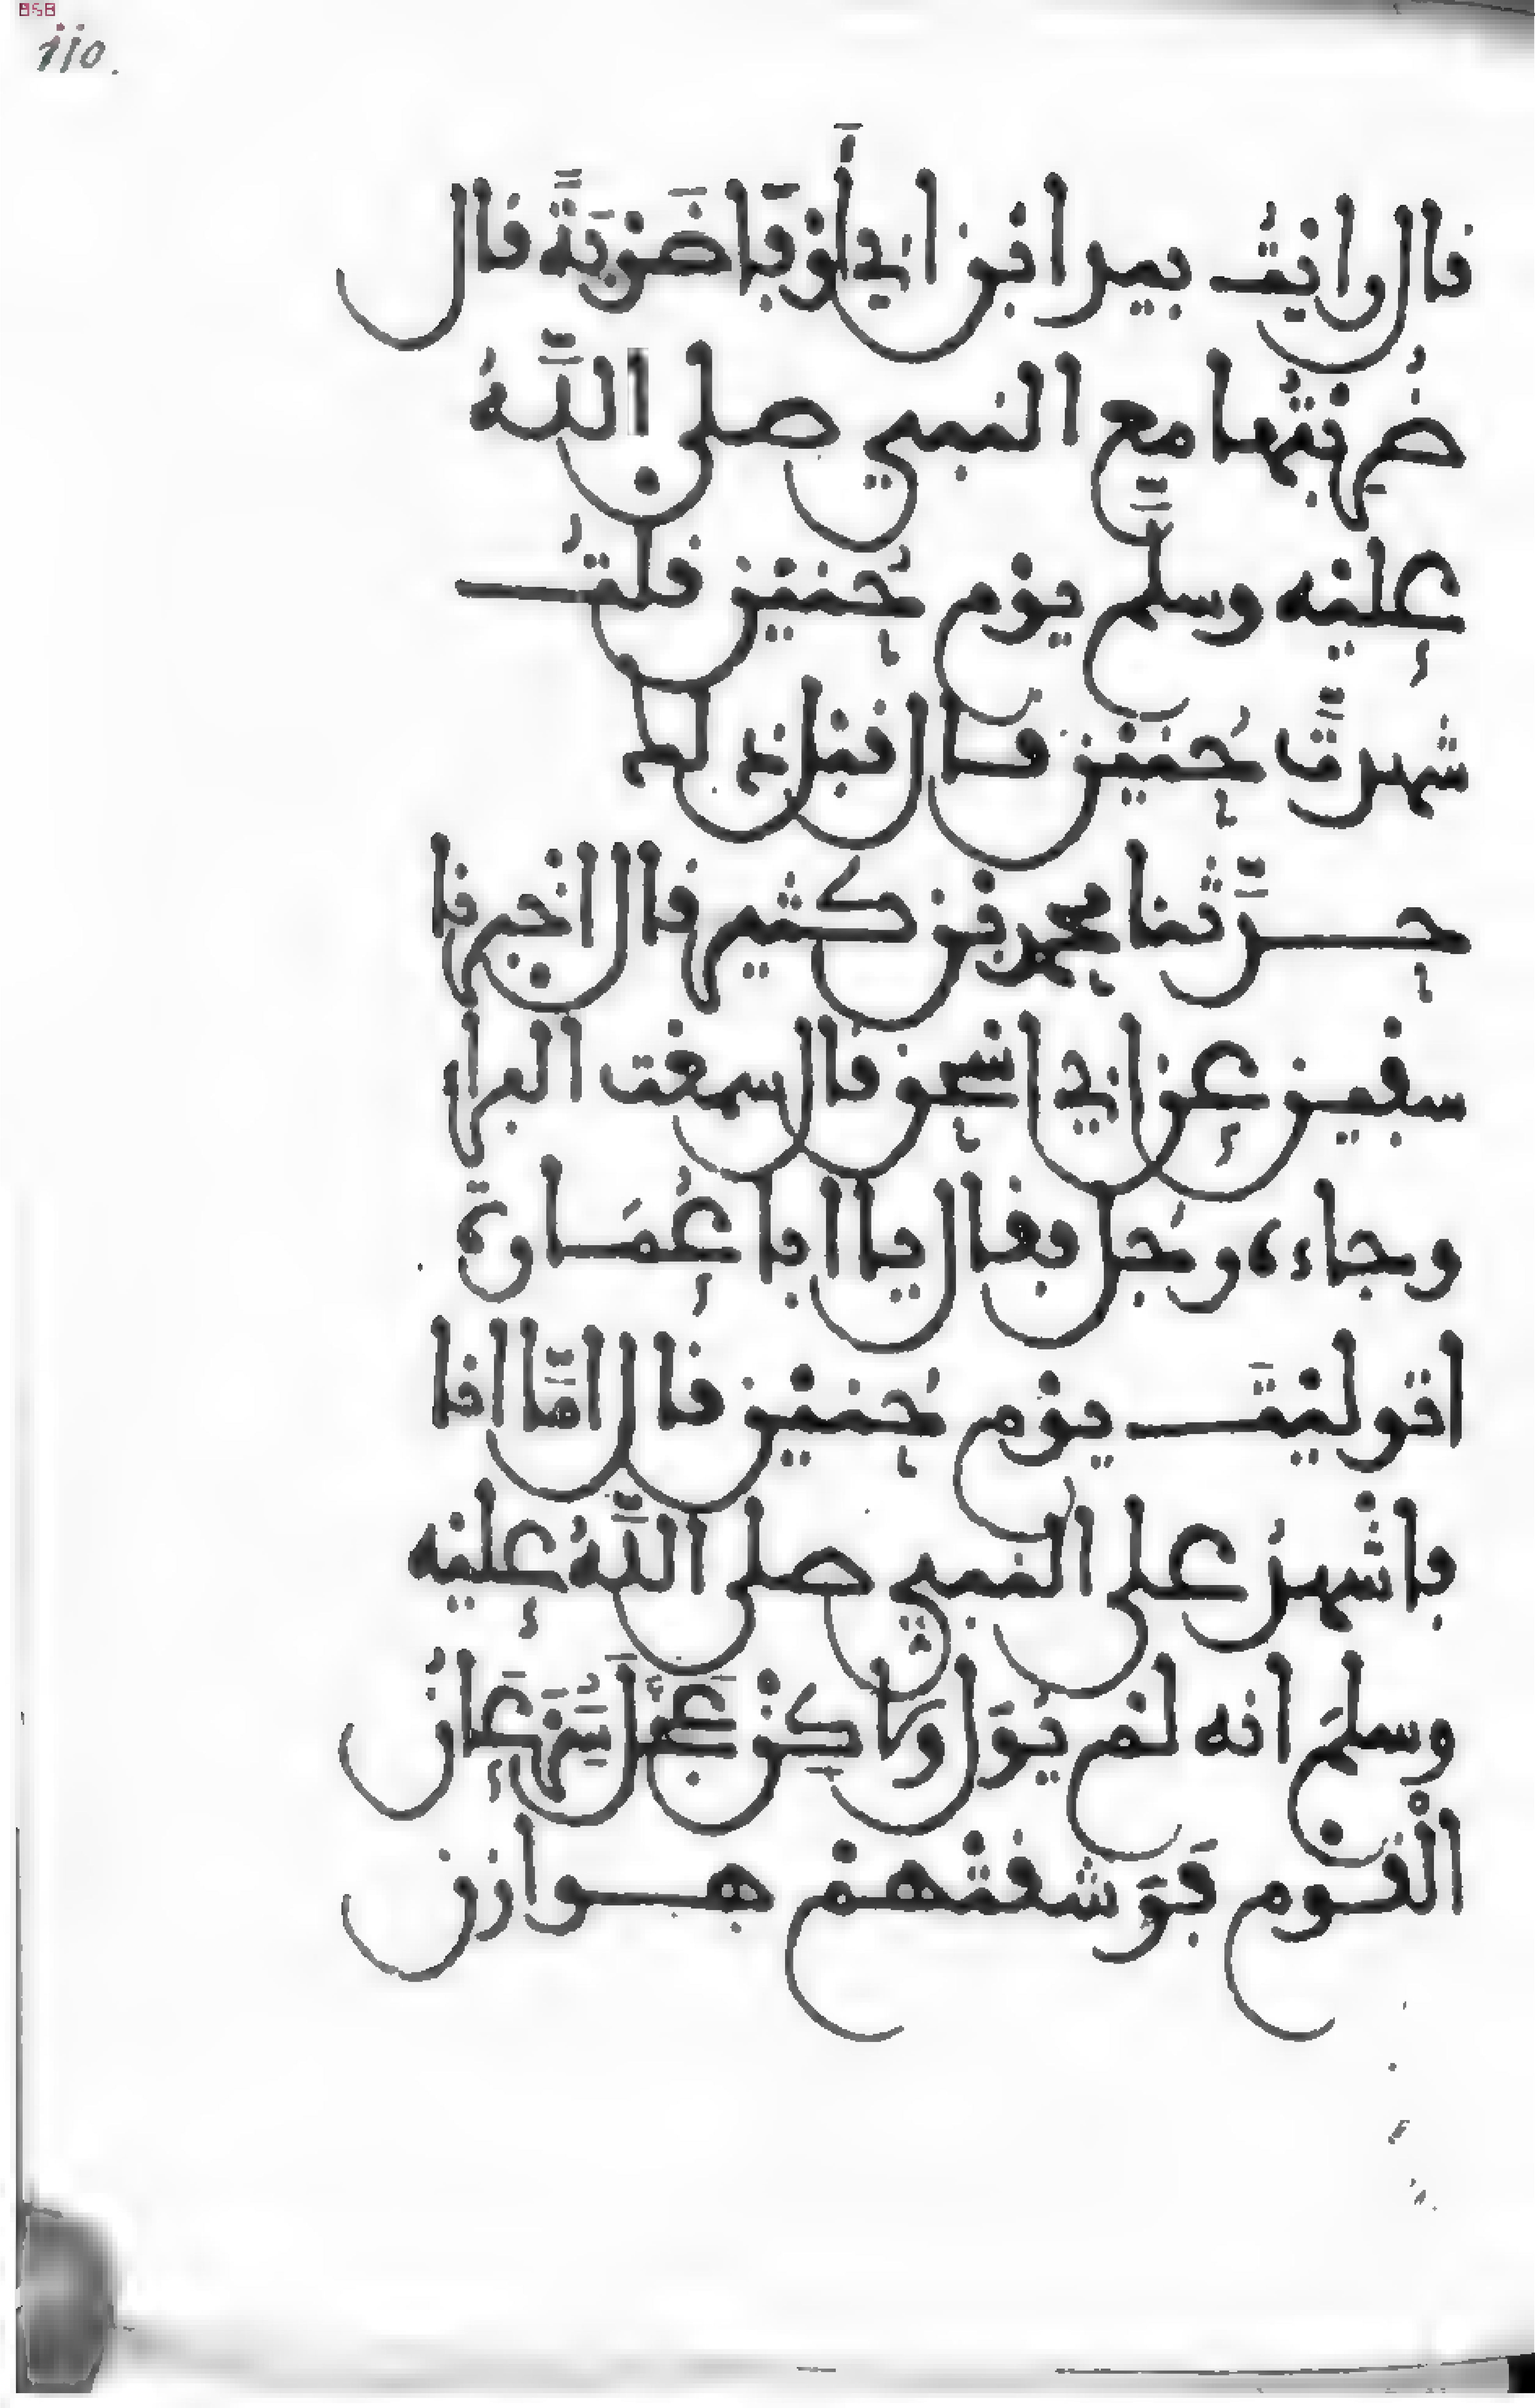 110.
قال رايت بيد ابن ابي أوفى ضَرْبَةً قال
ضُرِبْتُها مع النبي صلى اللهُ
عليه وسلّم يوم حُنين قلتُ
شهدتَّ حُنين قال قبل ذلك
حدّثنا محمد بن كثير قال اخبرنا
سفين عن ابي اسحق قال سمعت البرا
وجاءه رجل فقال يا ابا عُمَارة
اتوليتَ يوم حُنين قال امّا انا
فاشهدُ على النبي صلى اللهُ عليه
وسلم انه لم يُوَل ولاكِن عَجَل سَرَعَانُ
القوم فَرَشقتهم هوازن